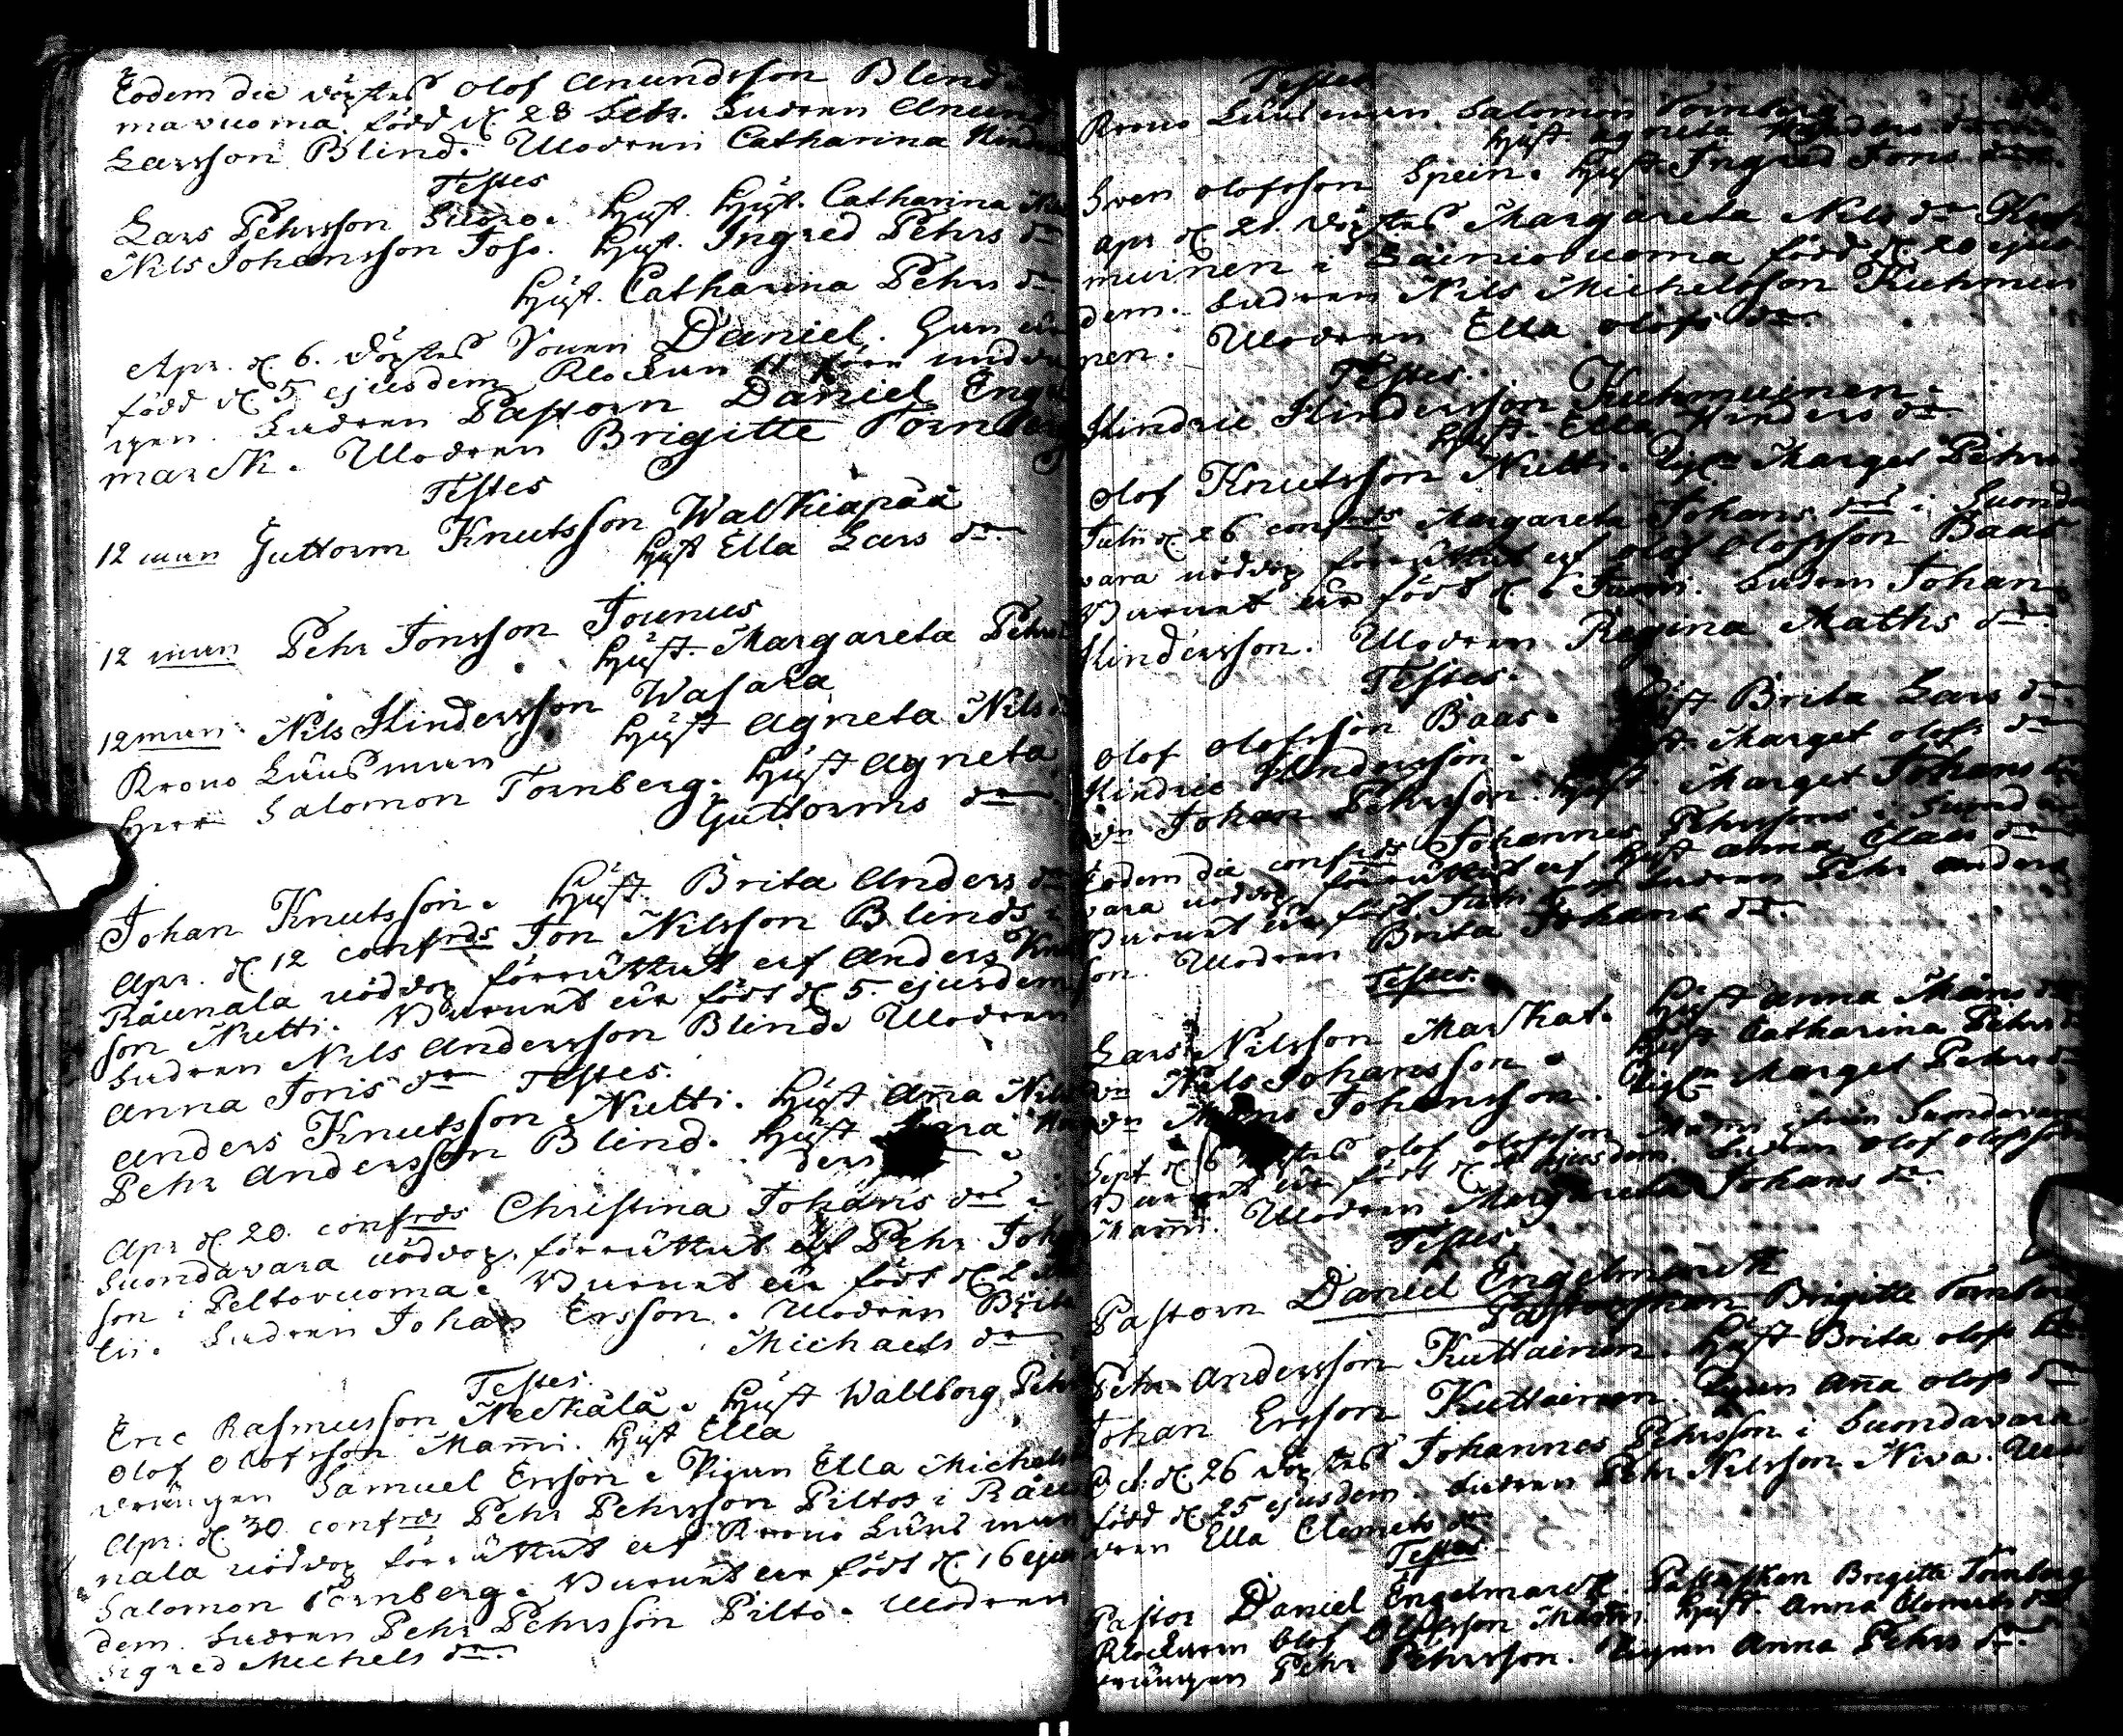 Eodem die döptes Olof Anundsson Blind
mavuoma. född d. 28 Febr. Fadren Anund
Larsson Blind. Modren Catharina Hindrs
Testes
Lars Pehrsson Suoro. Hust. Hust. Catharina
Nils Johansson Joso. Hust. Ingred Pehrs dr
Hust. Catharina Pehrs dr
Apr. d. 6. döptes Sonen Daniel. Han är
född d. 5 ejusdem Klockan 11 före midda
gen. Fadren Pastorn Daniel Engel
marck. Modren Brigitte Tornberg
Testes
12 man Guttorm Knutsson Walkiapää
Hust Ella Lars dr.
12 man Pehr Jonsson Jounus
Hust. Margareta Pehrs
12 man. Nils Hindersson Wasara
Hust Agneta Nils dr
Krono Länsman
Herr Salomon Tornberg. Hust Agneta
Guttorms dr.
Johan Knutsson. Hust. Brita Anders dr
Apr. d. 12 confrds Jon Nilsson Blinds i
Räunala nöddop förrättat af Anders Knut
son Nutti. Barnet är födt d. 5. ejusdem
Fadren Nils Andersson Blind. Modren
Anna Jons dr Testes.
Anders Knutsson Nutti. Hust Anna Nils
Pehr Andersson Blind. Hust
ders
Apr d. 20. confrds Christina Johans drs i
Suondavara nöddop. förrättat af Pehr Joh
son i Peltovuoma. Barnet är födt d. 2
tii. Fadren Johan Ersson. Modren Brita
Michaels dr
Testes.
Eric Rasmusson Neckälä. Hust Wallborg Pehr
Olof Olofsson Mammi. Hust Ella
Drängen Samuel Ersson. Pigan Ella Michels
Apr. d. 30 confrds Pehr Pehrsson Piltos i Räu
nala nöddop förrättat af Krono Länsman
Salomon Tornberg. Barnet är födt d. 16 ejus
dem. Fadren Pehr Pehrsson Pilto. Modren
Sigred Michels dr.
Testes
Krono Länsman Salomon Tornberg
Hust. Agneta
Sven Olofsson Spein. Hust. Ingred Jons dr.
Apr d. 21. döptes Margareta Nils dr Kuh
muinen i Säiniovuoma född d. 20 ejus
dem. Fadren Nils Michelsson Kuhmui
nen. Modren Ella Olofs dr.
Testes.
Hindric Hindersson Kuhmuinen.
Hust. Ella Hinders dr
Olof Knutsson Nutti. Pign Marget Pehrs
Julii d. 26 confrds Margareta Johans drs i Suonda
vara nöddop förrättat af Olof Olofsson Baas
Barnet är födt d. 6 Junii. Fadren Johan
Hindersson. Modren Regina Maths dr.
Testes.
Olof Olofsson Baas. Hust Brita Lars dr.
Hindric Hindersson. Hust. Marget Olofs dr
Dn Johan Pehrsson. Hust. Marget Johans dr
Eodem die confrds Johannes Pehrssons i Suonda
vara nöddop förrättat af Hust Anna Claes dr
Barnet är födt Julii Fadren Pehr Anders
son. Modren Brita Johans dr.
Testes.
Lars Nilsson Markat. Hust Anna Måns dr
Dn Nils Johansson. Hust Catharina Pehrs dr
Dn Måns Johansson. Pign Marget Pehrs dr
Sept d. 6 döptes Olof Olofsson Mammi från Suondavara
Barnet är födt d. ejusdem. Fadren Olof Olofsson
Mammi. Modren Margareta Johans dr.
Testes
Pastorn Daniel Engelmarck
Pastorskan Brigitte Tornberg
Pehr Andersson Kuttainen. Hust Brita Olofs
Johan Ersson Kuttainen. Pigan Anna Olofs dr
Oct. d. 26 döptes Johannes Pehrsson i Suondavara
född d. 25 ejusdem. Fadren Pehr Nilsson Niva. Mo
dren Ella Clemets dr
Testes
Pastor Daniel Engelmarck. Pastorskan Brigitte Tornberg
Klockaren Olof Olofsson Mammi. Hust. Anna Clemets dr
Drängen Pehr Pehrsson. Pigan Anna Pehrs dr.